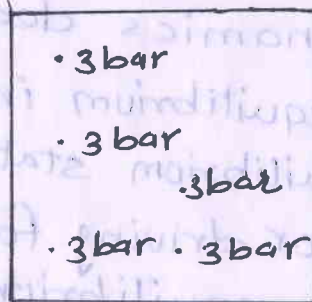 · 3bar
· 3bar
· 3bar
· 3bar · 3bar